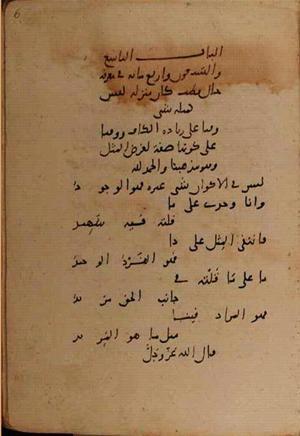 الباب التاسع
والتسعون واربع مائة في معرفة
حال قطب كان منزله ليس
كمثله شى
وقتا على زيادة الكاف ووقتا
على كونها صفة لفرض المثل
وهو مذهبنا والحمد لله
ليس في الاكوان شى غيره فهو الوجود
وانا وحدى على ما
قلته فيه شهيد
فانتفى المثل على ذا
فهو الفرد الوحيد
ما على ما قلته في
جانب الحق من يد
فهو المراد فينا
مثل ما هو المريد
قال الله عز وجل